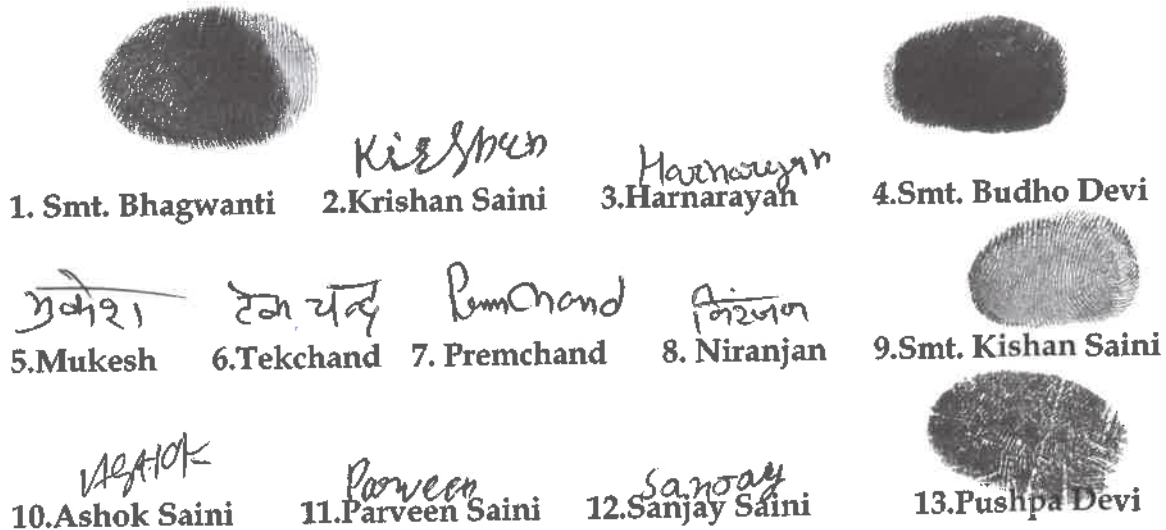 Kirshan Harnarayan
1. Smt. Bhagwanti 2.Krishan Saini 3.Harnarayan 4.Smt. Budho Devi
मुकेश टेक चन्द PremChand निरंजन
5.Mukesh 6.Tekchand 7. Premchand 8. Niranjan 9.Smt. Kishan Saini
ASHOK Parveen Sanjay
10.Ashok Saini 11.Parveen Saini 12.Sanjay Saini 13.Pushpa Devi